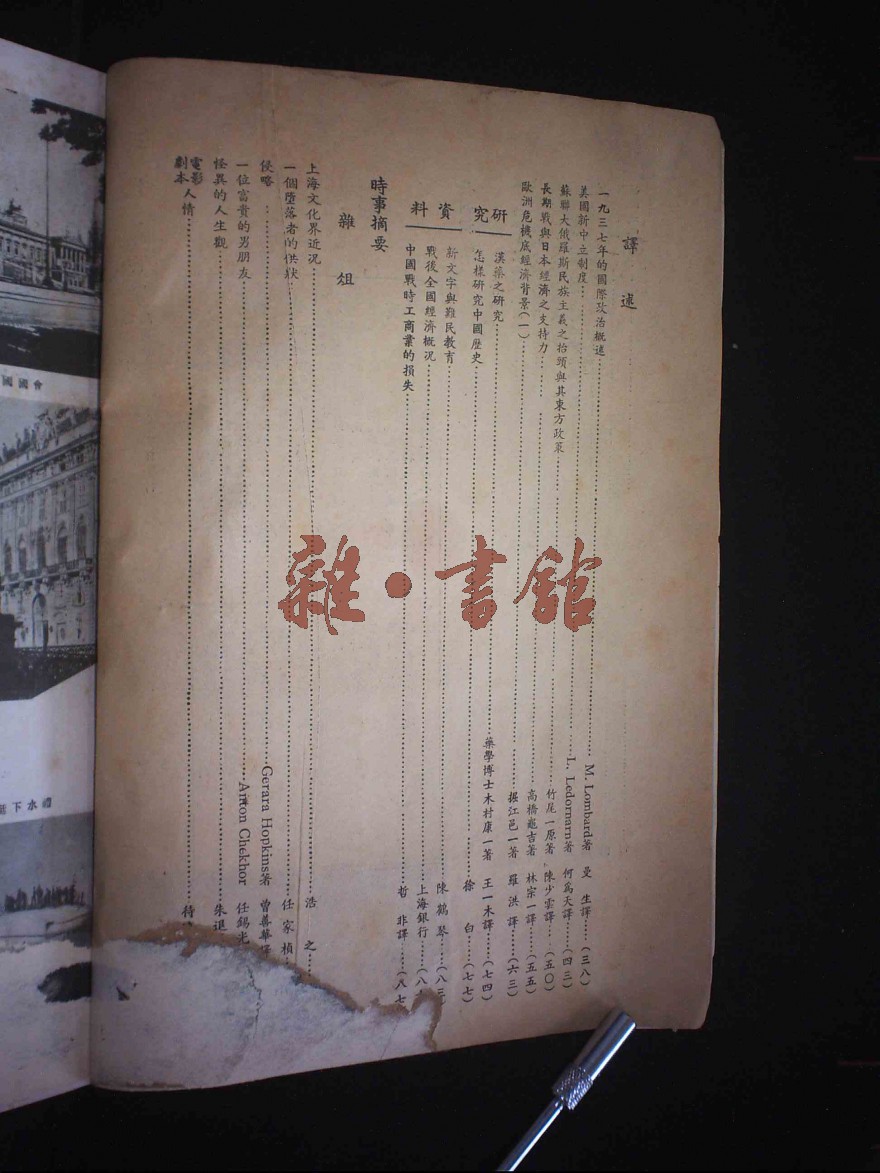 譯述
一九三七年的國際政治概述……M. Lombard著 曼生譯……(三八)
美國新中立制度……L. Ledornarn著 何爲天譯……(四三)
蘇聯大俄羅斯民族主義之抬頭與其東方政策……竹尾一原著 陳少雲譯……(五〇)
長期戰與日本經濟之支持力……高橋龜吉著 林宗一譯……(五五)
歐洲危機底經濟背景(一)……堀江邑一著 羅洪譯……(六三)
研究
漢藥之研究……藥學博士木村康一著 王一木譯……(七四)
怎樣研究中國歷史……徐白……(七七)
資料
新文字與難民教育……陳鶴琴……(八三
戰後全國經濟概況……上海銀行……(八
中國戰時工商業的損失……哲非譯……(八七
時事摘要
雜俎
上海文化界近況……浩之……
一個墮落者的供狀……任家楨……
侵略……Gerara Hopkins著 曾善華譯
一位富貴的男朋友……Anton Chekhor 任錫光
怪異的人生觀……朱退
電影劇本 人情……待
國國會
下水禮
雜·書館